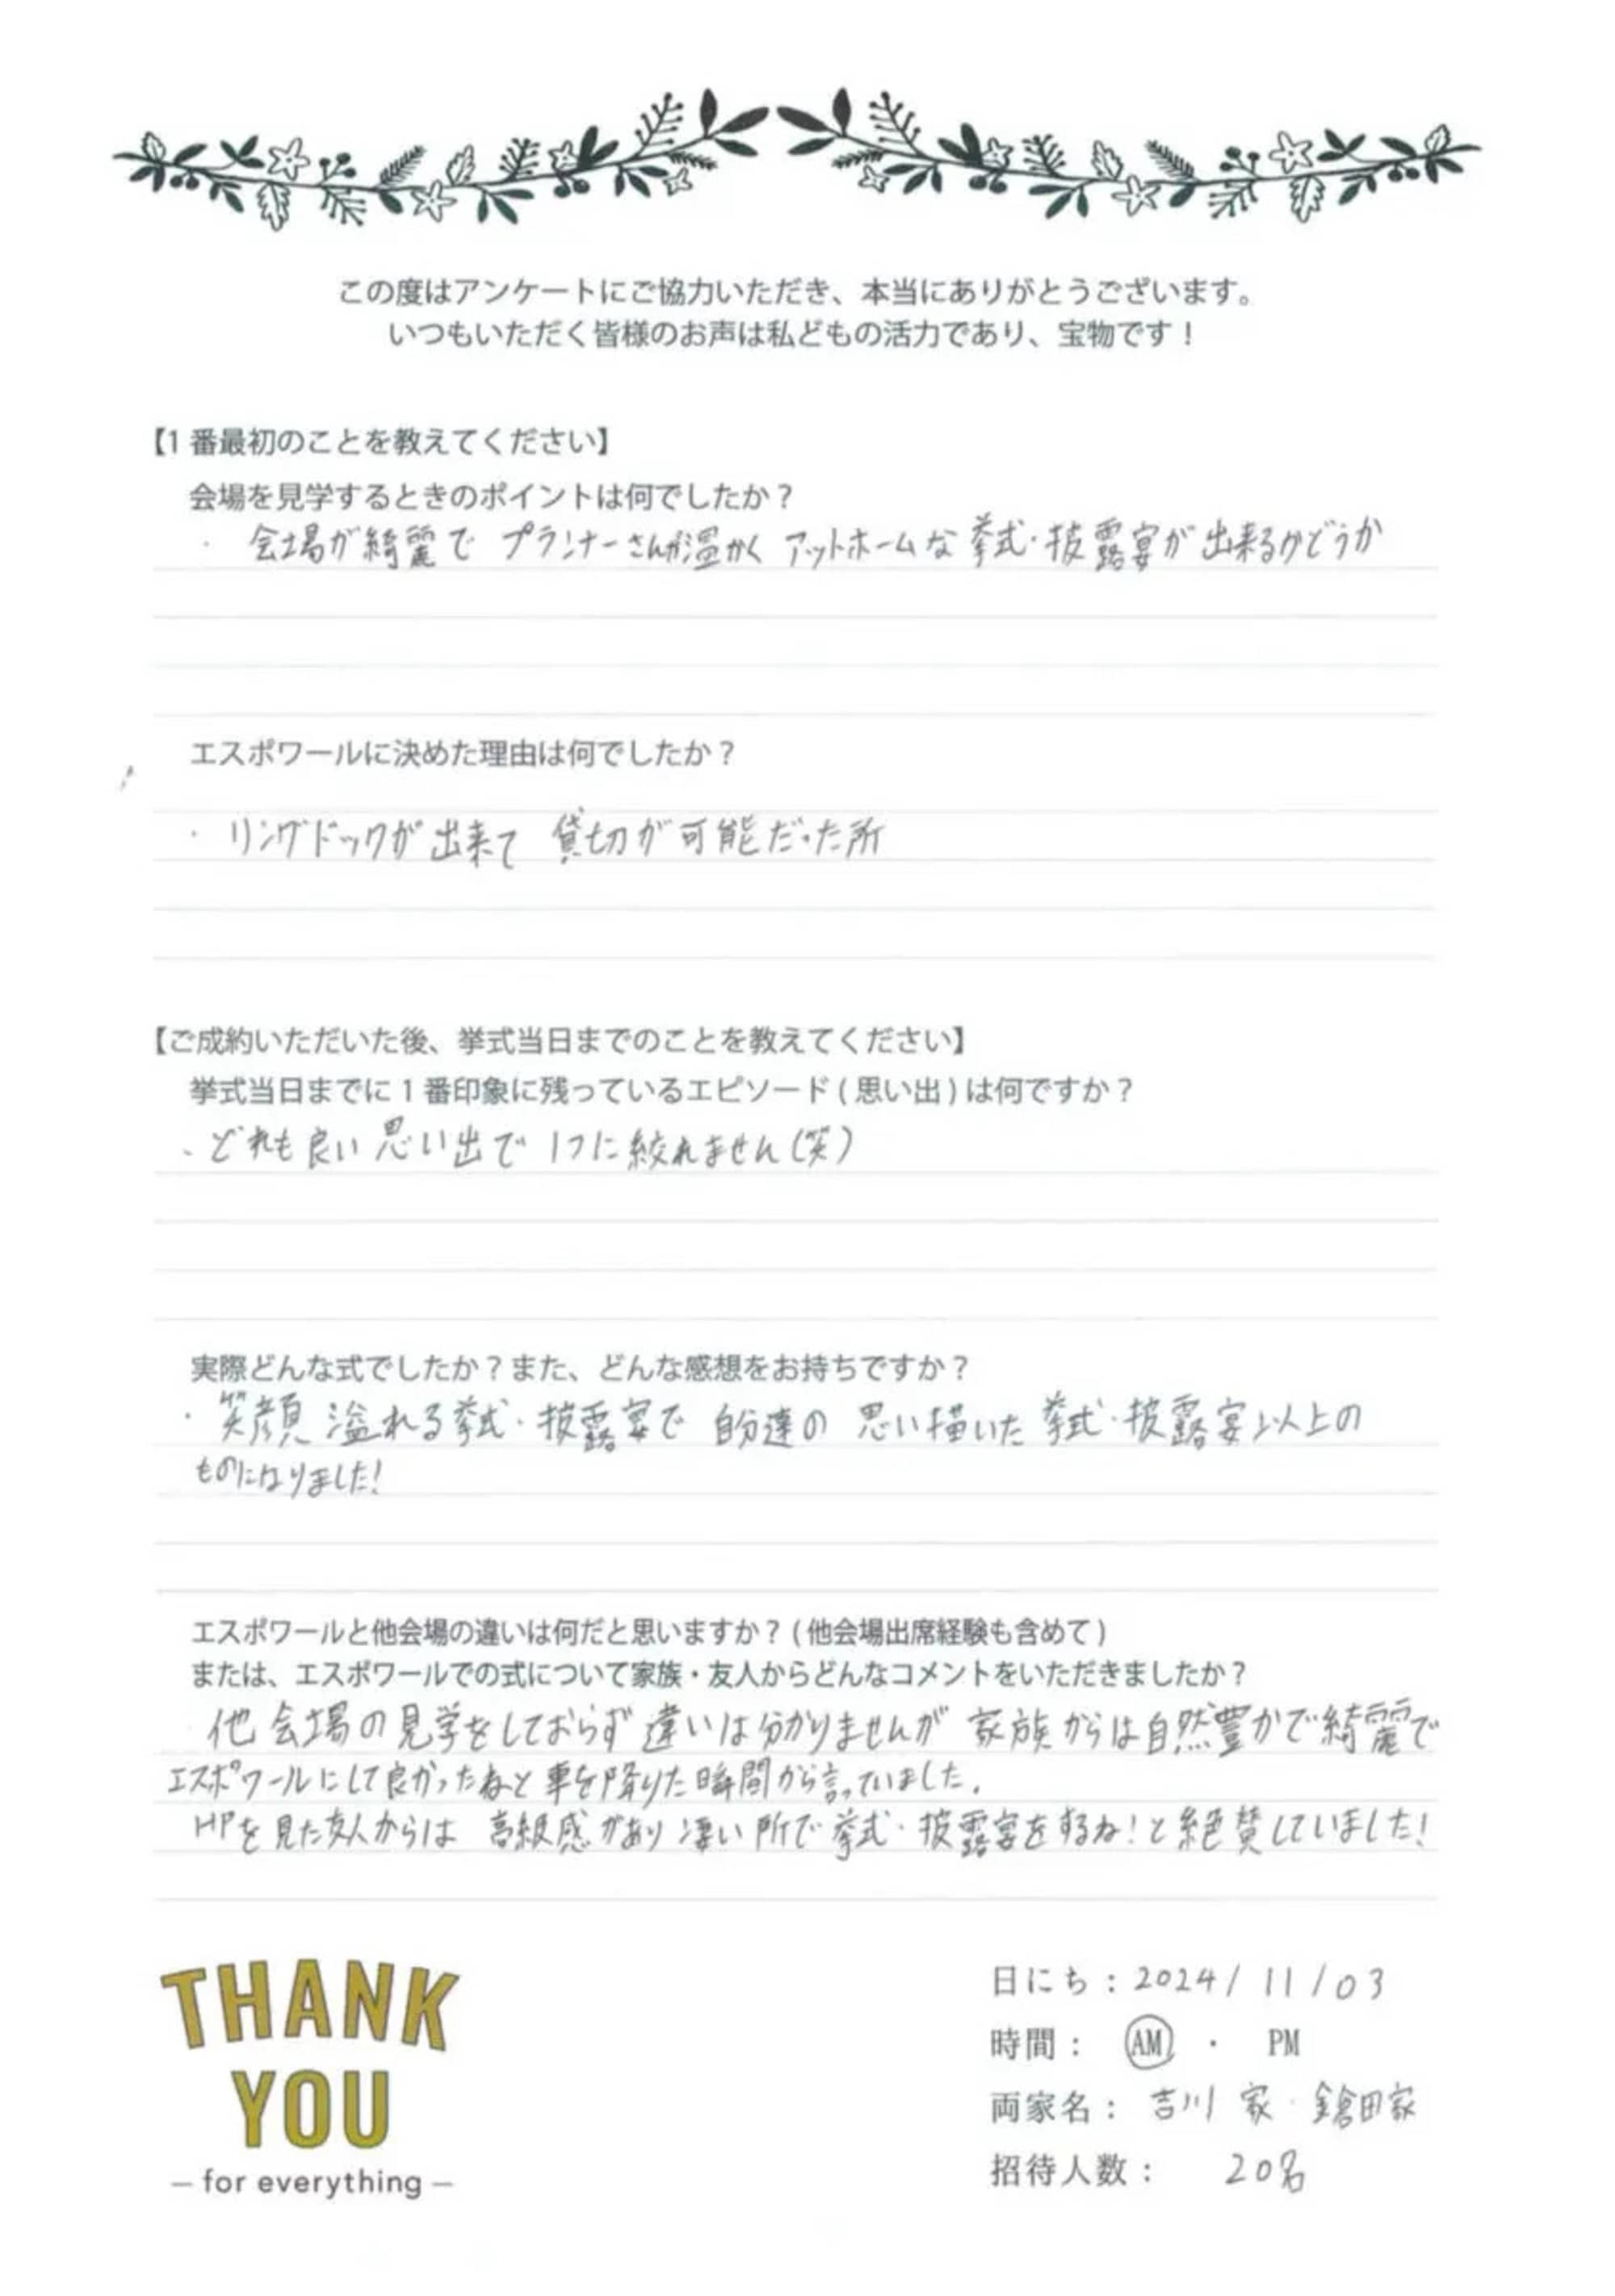 この度はアンケートにご協力いただき、本当にありがとうございます。
いつもいただく皆様のお声は私どもの活力であり、宝物です！
【1番最初のことを教えてください】
会場を見学するときのポイントは何でしたか？
・会場が綺麗で プランナーさんが温かく アットホームな 挙式・披露宴が 出来るかどうか
エスポワールに決めた理由は何でしたか？
・リングドックが出来て 貸切が可能だった所
【ご成約いただいた後、挙式当日までのことを教えてください】
挙式当日までに1番印象に残っているエピソード(思い出)は何ですか？
・どれも良い思い出で 1つに絞れません(笑)
実際どんな式でしたか？また、どんな感想をお持ちですか？
・笑顔溢れる挙式・披露宴で 自分達の 思い描いた 挙式・披露宴以上の
ものになりました!
エスポワールと他会場の違いは何だと思いますか？(他会場出席経験も含めて)
または、エスポワールでの式について家族・友人からどんなコメントをいただきましたか？
他会場の見学をしておらず 違いは分かりませんが 家族からは自然豊かで綺麗で
エスポワールにして良かったねと 車を降りた瞬間から言っていました。
HPを見た友人からは 高級感があり 凄い所で 挙式・披露宴をするね!と絶賛していました!
THANK
YOU
– for everything –
日にち：2024/11/03
時間： AM ・ PM
両家名：吉川 家・鎌田家
招待人数： 20名